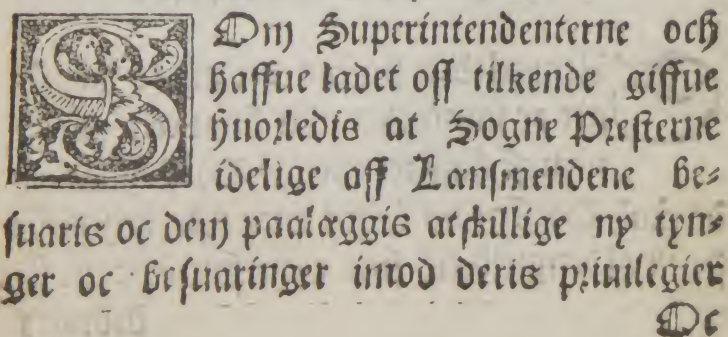 SOm Superintendenterne och
haffue ladet oss tilkende giffue
huorledis at Sogne Presterne
idelige aff Lænsmendene be⸗
suaris oc dem paalæggis atskillige ny tyn⸗
ger oc besuaringer imod deris priuilegier
Oc